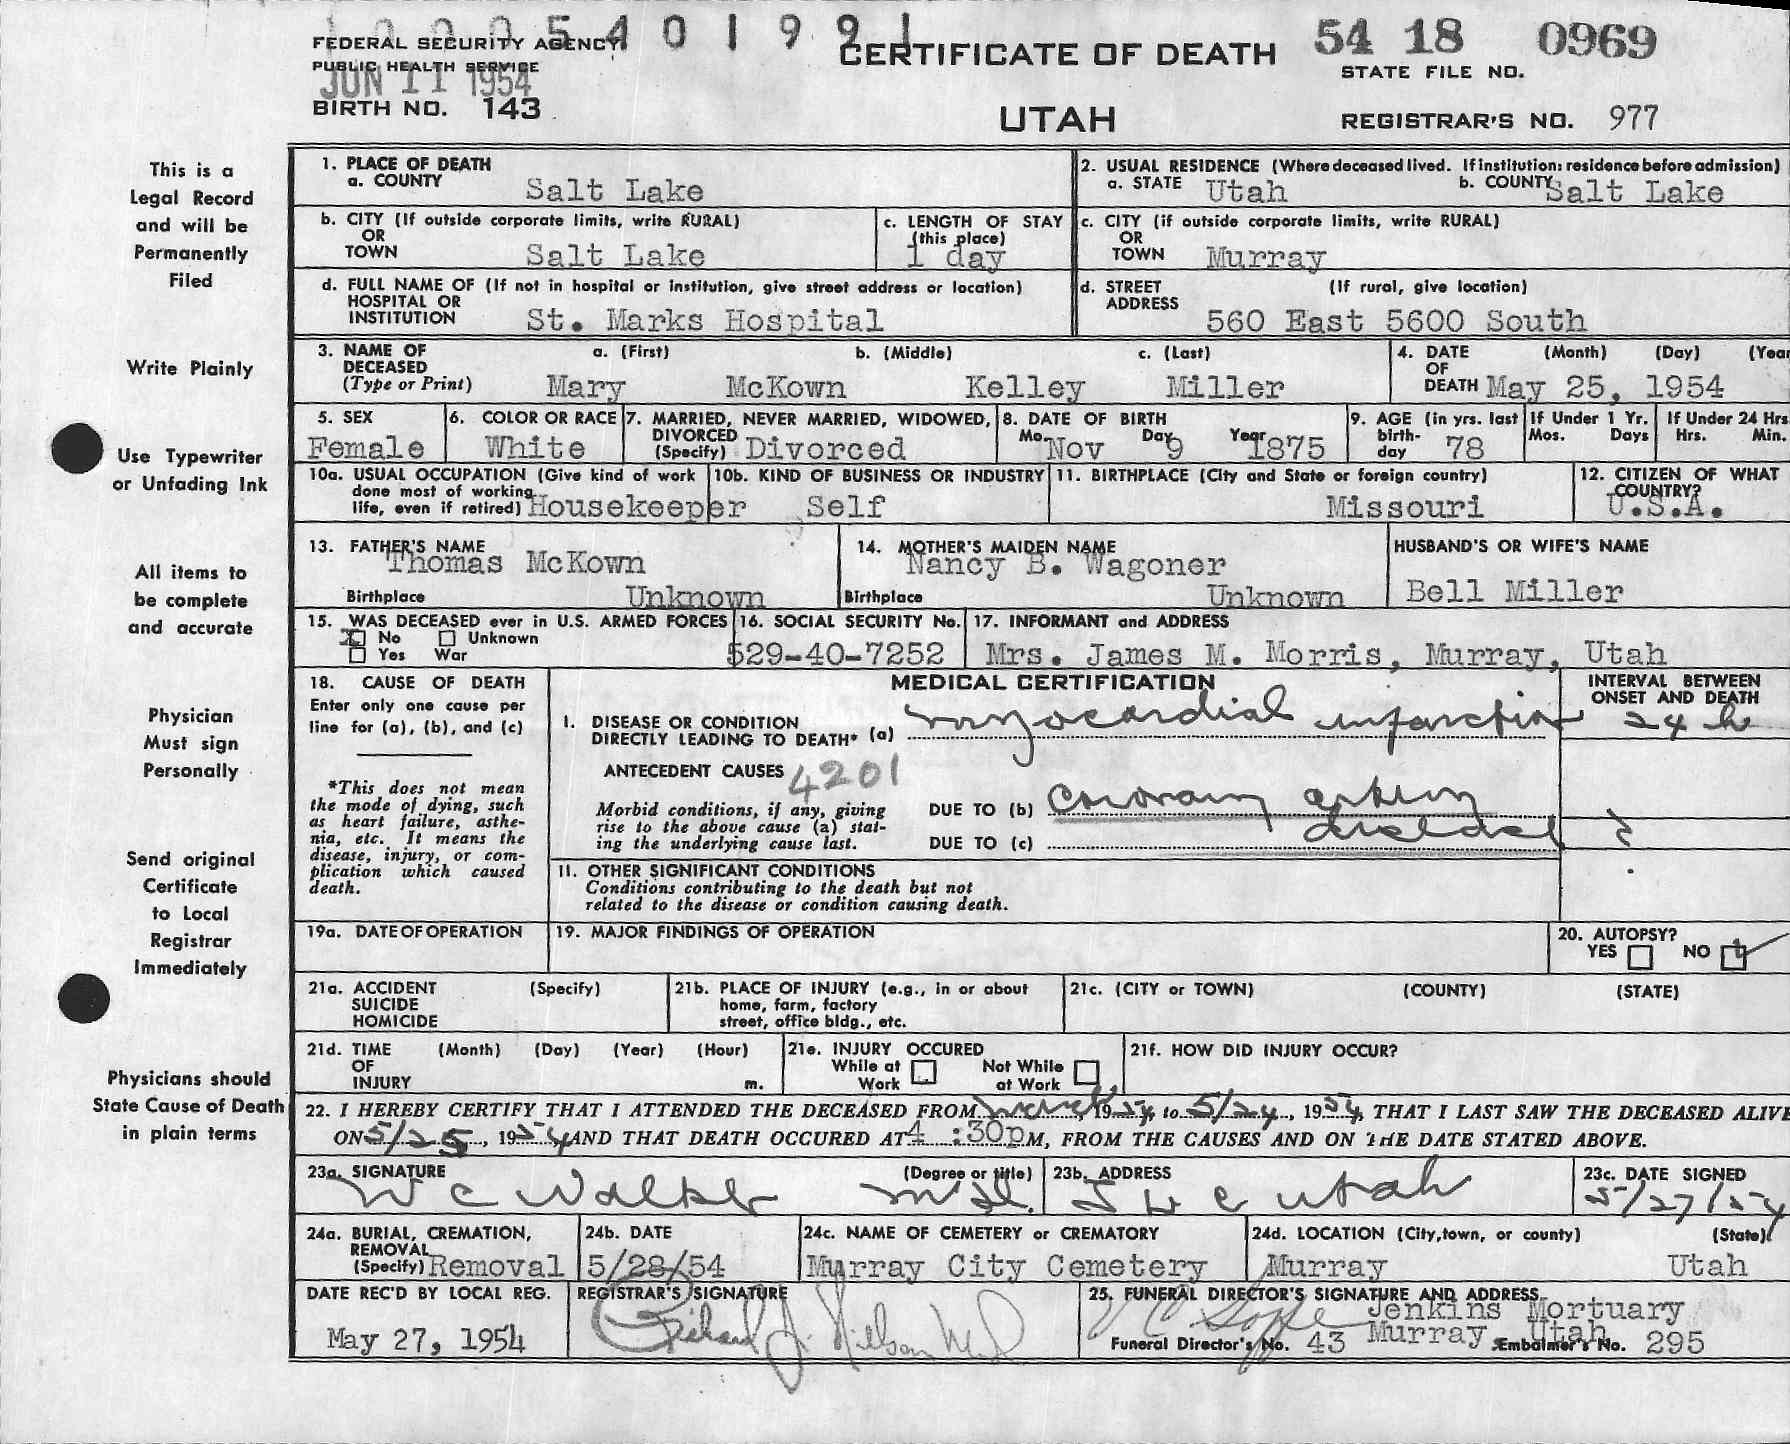 10005401991
FEDERAL SECURITY AGENCY
PUBLIC HEALTH SERVICE
JUN 11 1954
BIRTH NO. 143
CERTIFICATE OF DEATH
UTAH
54 18 0969
STATE FILE NO.
REGISTRAR'S NO. 977
This is a
Legal Record
and will be
Permanently
Filed
Write Plainly
Use Typewriter
or Unfading Ink
All items to
be complete
and accurate
Physician
Must sign
Personally
Send original
Certificate
to Local
Registrar
Immediately
Physicians should
State Cause of Death
in plain terms
1. PLACE OF DEATH
a. COUNTY Salt Lake
2. USUAL RESIDENCE (Where deceased lived. If institution: residence before admission)
a. STATE Utah b. COUNTY Salt Lake
b. CITY (If outside corporate limits, write RURAL)
OR
TOWN Salt Lake
c. LENGTH OF STAY
(this place)
1 day
c. CITY (if outside corporate limits, write RURAL)
OR
TOWN Murray
d. FULL NAME OF (If not in hospital or institution, give street address or location)
HOSPITAL OR
INSTITUTION St. Marks Hospital
d. STREET (If rural, give location)
ADDRESS
560 East 5600 South
3. NAME OF a. (First) b. (Middle) c. (Last)
DECEASED
(Type or Print) Mary McKown Kelley Miller
4. DATE (Month) (Day) (Year
OF
DEATH May 25, 1954
5. SEX
Female
6. COLOR OR RACE
White
7. MARRIED, NEVER MARRIED, WIDOWED,
DIVORCED
(Specify) Divorced
8. DATE OF BIRTH
Mo. Nov Day 9 Year 1875
9. AGE (in yrs. last
birth-
day 78
If Under 1 Yr.
Mos. Days
If Under 24 Hrs.
Hrs. Min.
10a. USUAL OCCUPATION (Give kind of work
done most of working
life, even if retired) Housekeeper
10b. KIND OF BUSINESS OR INDUSTRY
Self
11. BIRTHPLACE (City and State or foreign country)
Missouri
12. CITIZEN OF WHAT
COUNTRY?
U.S.A.
13. FATHER'S NAME
Thomas McKown
Birthplace Unknown
14. MOTHER'S MAIDEN NAME
Nancy B. Wagoner
Birthplace Unknown
HUSBAND'S OR WIFE'S NAME
Bell Miller
15. WAS DECEASED ever in U.S. ARMED FORCES
X No Unknown
Yes War
16. SOCIAL SECURITY No.
529-40-7252
17. INFORMANT and ADDRESS
Mrs. James M. Morris, Murray, Utah
18. CAUSE OF DEATH
Enter only one cause per
line for (a), (b), and (c)
*This does not mean
the mode of dying, such
as heart failure, asthe-
nia, etc. It means the
disease, injury, or com-
plication which caused
death.
MEDICAL CERTIFICATION
INTERVAL BETWEEN
ONSET AND DEATH
I. DISEASE OR CONDITION
DIRECTLY LEADING TO DEATH* (a) myocardial infarction 24 h
ANTECEDENT CAUSES 4201
Morbid conditions, if any, giving
rise to the above cause (a) stat-
ing the underlying cause last.
DUE TO (b) coronary artery
disease ?
DUE TO (c)
11. OTHER SIGNIFICANT CONDITIONS
Conditions contributing to the death but not
related to the disease or condition causing death.
19a. DATE OF OPERATION
19. MAJOR FINDINGS OF OPERATION
20. AUTOPSY?
YES NO ✓
21a. ACCIDENT (Specify)
SUICIDE
HOMICIDE
21b. PLACE OF INJURY (e.g., in or about
home, farm, factory
street, office bldg., etc.
21c. (CITY or TOWN) (COUNTY) (STATE)
21d. TIME (Month) (Day) (Year) (Hour)
OF
INJURY m.
21e. INJURY OCCURED
While at Not While
Work at Work
21f. HOW DID INJURY OCCUR?
22. I HEREBY CERTIFY THAT I ATTENDED THE DECEASED FROM March, 1954, to 5/24, 1954, THAT I LAST SAW THE DECEASED ALIVE
ON 5/25, 1954 AND THAT DEATH OCCURED AT 4:30p M, FROM THE CAUSES AND ON THE DATE STATED ABOVE.
23a. SIGNATURE (Degree or title)
W C Walker MD.
23b. ADDRESS
S L C Utah
23c. DATE SIGNED
5/27/54
24a. BURIAL, CREMATION,
REMOVAL
(Specify) Removal
24b. DATE
5/28/54
24c. NAME OF CEMETERY or CREMATORY
Murray City Cemetery
24d. LOCATION (City, town, or county) (State)
Murray Utah
DATE REC'D BY LOCAL REG.
May 27, 1954
REGISTRAR'S SIGNATURE
Richard J. Nielson MD
25. FUNERAL DIRECTOR'S SIGNATURE AND ADDRESS
Jenkins Mortuary
Murray, Utah
Funeral Director's No. 43 Embalmer's No. 295